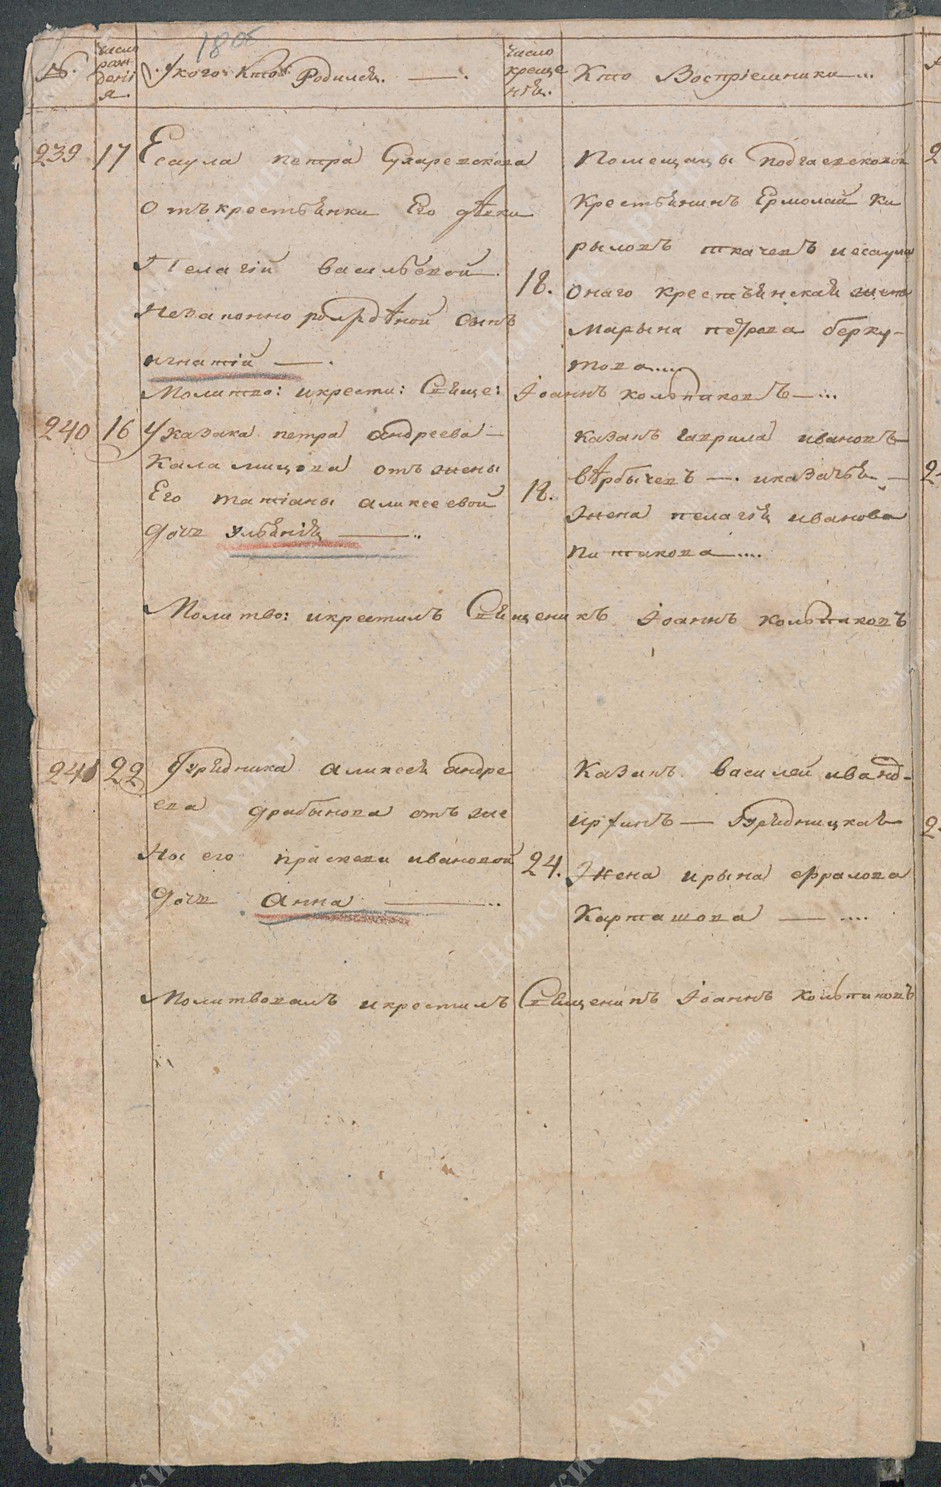 1806
№.
число рождения.
У кого: кто Родилсѧ. —.
число крещенiѣ.
Кто Воспрiемники —...
239
17
Есаула петра Сухаревскова
отъ крестьянки Его девки
Пелагiи васильевой
Незаконно рожденой сынъ
игнатiй —.
18.
Помещицы подгаевсковой
крестьянинъ Ермолай ки
рыловъ ткачевъ и есаула
онаго крестьянская жена
марына петрова берку-
това....
Молитво: и крести: Свяще: Iоаннъ кольпиковъ —...
240
16
У казака петра андреева —
каламицова отъ жены
Его татiаны аликсеевой
дочь ульянiя —..
18.
казакъ гаврила ивановъ
вербычевъ —. и казачья —
Жена пелагiя иванова
питикова —....
Молитво: и крестилъ Священикъ Iоаннъ кольпиковъ
241
22
Урядника аликсея андре
ева драбынова отъ же
ны его праскови ивановой
дочь анна —...
24.
казакъ василей иванов-
— Урядницкая
Жена ирына ефралова
карташова — ....
Молитвовалъ и крестилъ Священикъ Iоаннъ кольпиковъ